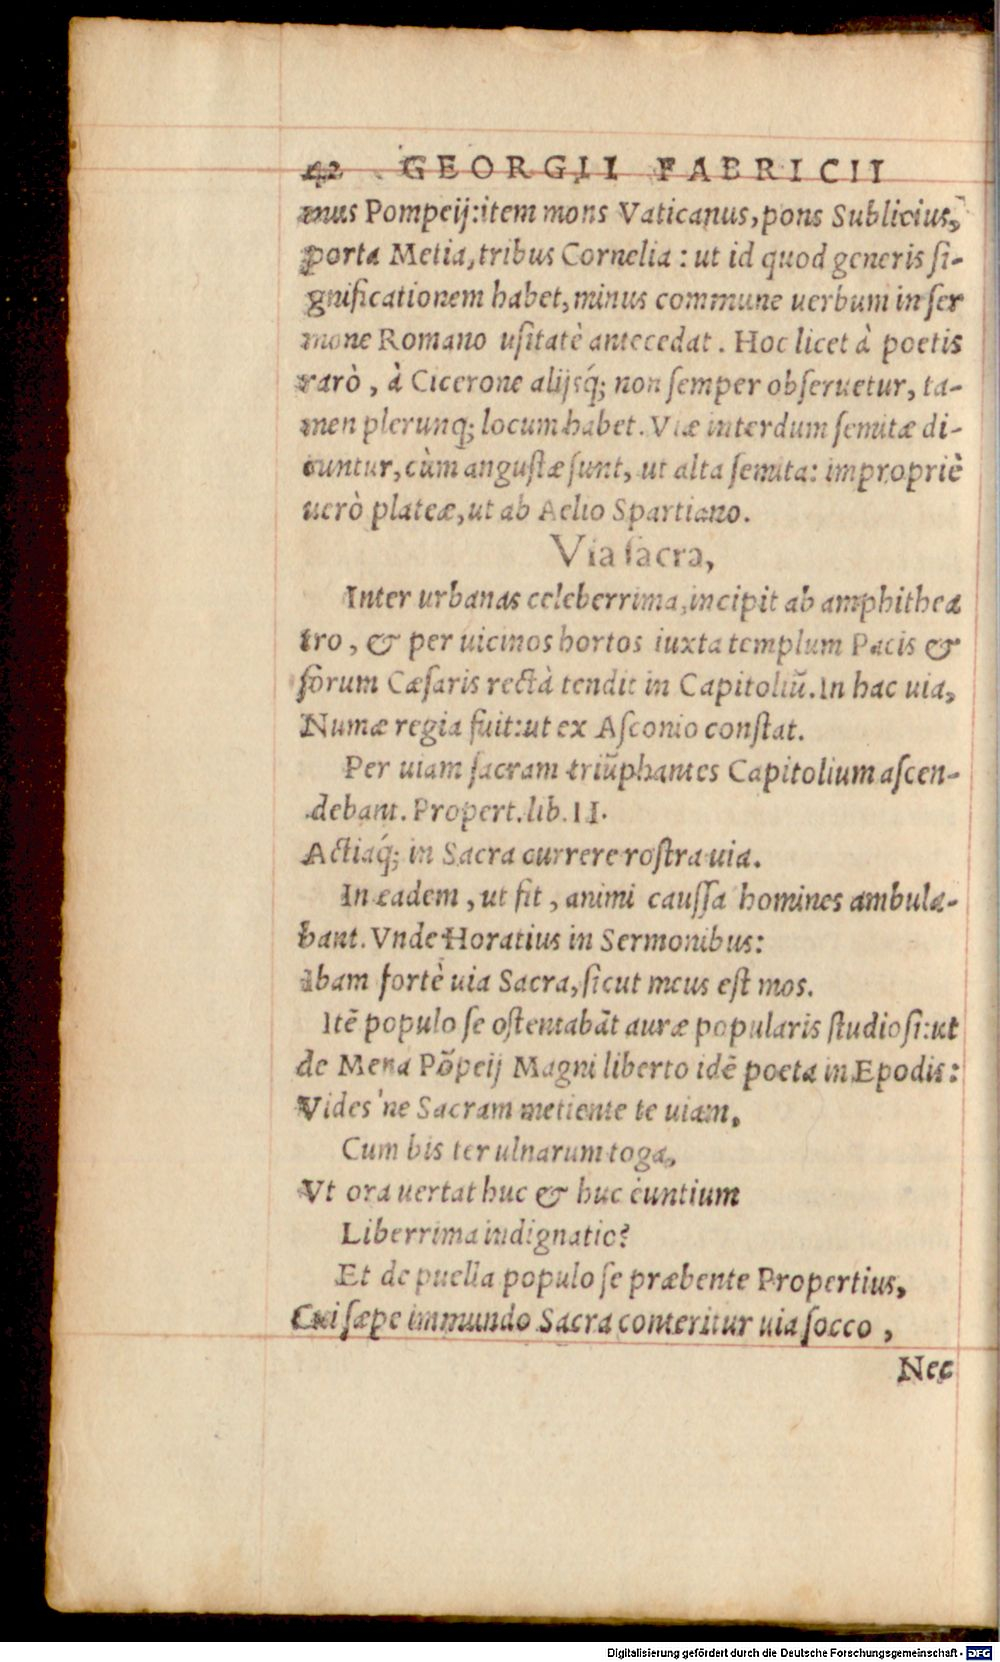 42 GEORGII FABRICII
mus Pompeij:item mons Vaticanus,pons Sublicius,
porta Metia,tribus Cornelia : ut id quod generis ſi-
gnificationem habet,minus commune uerbum in ſer
mone Romano uſitatè antecedat. Hoc licet à poetis
rarò, à Cicerone alijsq́; non ſemper obſeruetur, ta-
men plerunq; locum habet. Viæ interdum ſemitæ di-
cuntur,cùm anguſtæ ſunt, ut alta ſemita: impropriè
uerò plateæ,ut ab Aelio Spartiano.
Via ſacra,
Inter urbanas celeberrima,incipit ab amphithea
tro, & per uicinos hortos iuxta templum Pacis &
forum Cæſaris rectà tendit in Capitoliũ.In hac uia,
Numæ regia fuit:ut ex Aſconio conſtat.
Per uiam ſacram triũphantes Capitolium aſcen-
debant. Propert.lib.II.
Actiaq́; in Sacra currere roſtra uia.
In eadem, ut fit, animi cauſſa homines ambula-
bant. Vnde Horatius in Sermonibus:
Ibam fortè uia Sacra,ſicut meus eſt mos.
Itẽ populo ſe oſtentabãt auræ popularis ſtudioſi:ut
de Mena Põpeij Magni liberto idẽ poeta in Epodis:
Vides'ne Sacram metiente te uiam,
Cum bis ter ulnarum toga,
Vt ora uertat huc & huc euntium
Liberrima indignatio?
Et de puella populo ſe præbente Propertius,
Cui ſæpe immundo Sacra conteritur uia ſocco,
Nec
Digitalisierung gefördert durch die Deutsche Forschungsgemeinschaft - DFG